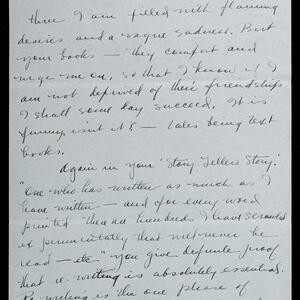 three I am filled with flaming
desires and a vague sadness. But
your books — they comfort and
urge me on, so that I know if I
am not deprived of their friendships
I shall some day succeed. It is
funny, isn't it — tales being text
books.
Again in your 'Story Tellers Story.'
"One who has written as much as I
have written — and for every word
printed hundreds I have scrawled
experimentally that will never be
read — etc" you give definite proof
that re-writing is absolutely essential.
Re-writing is the one phase of